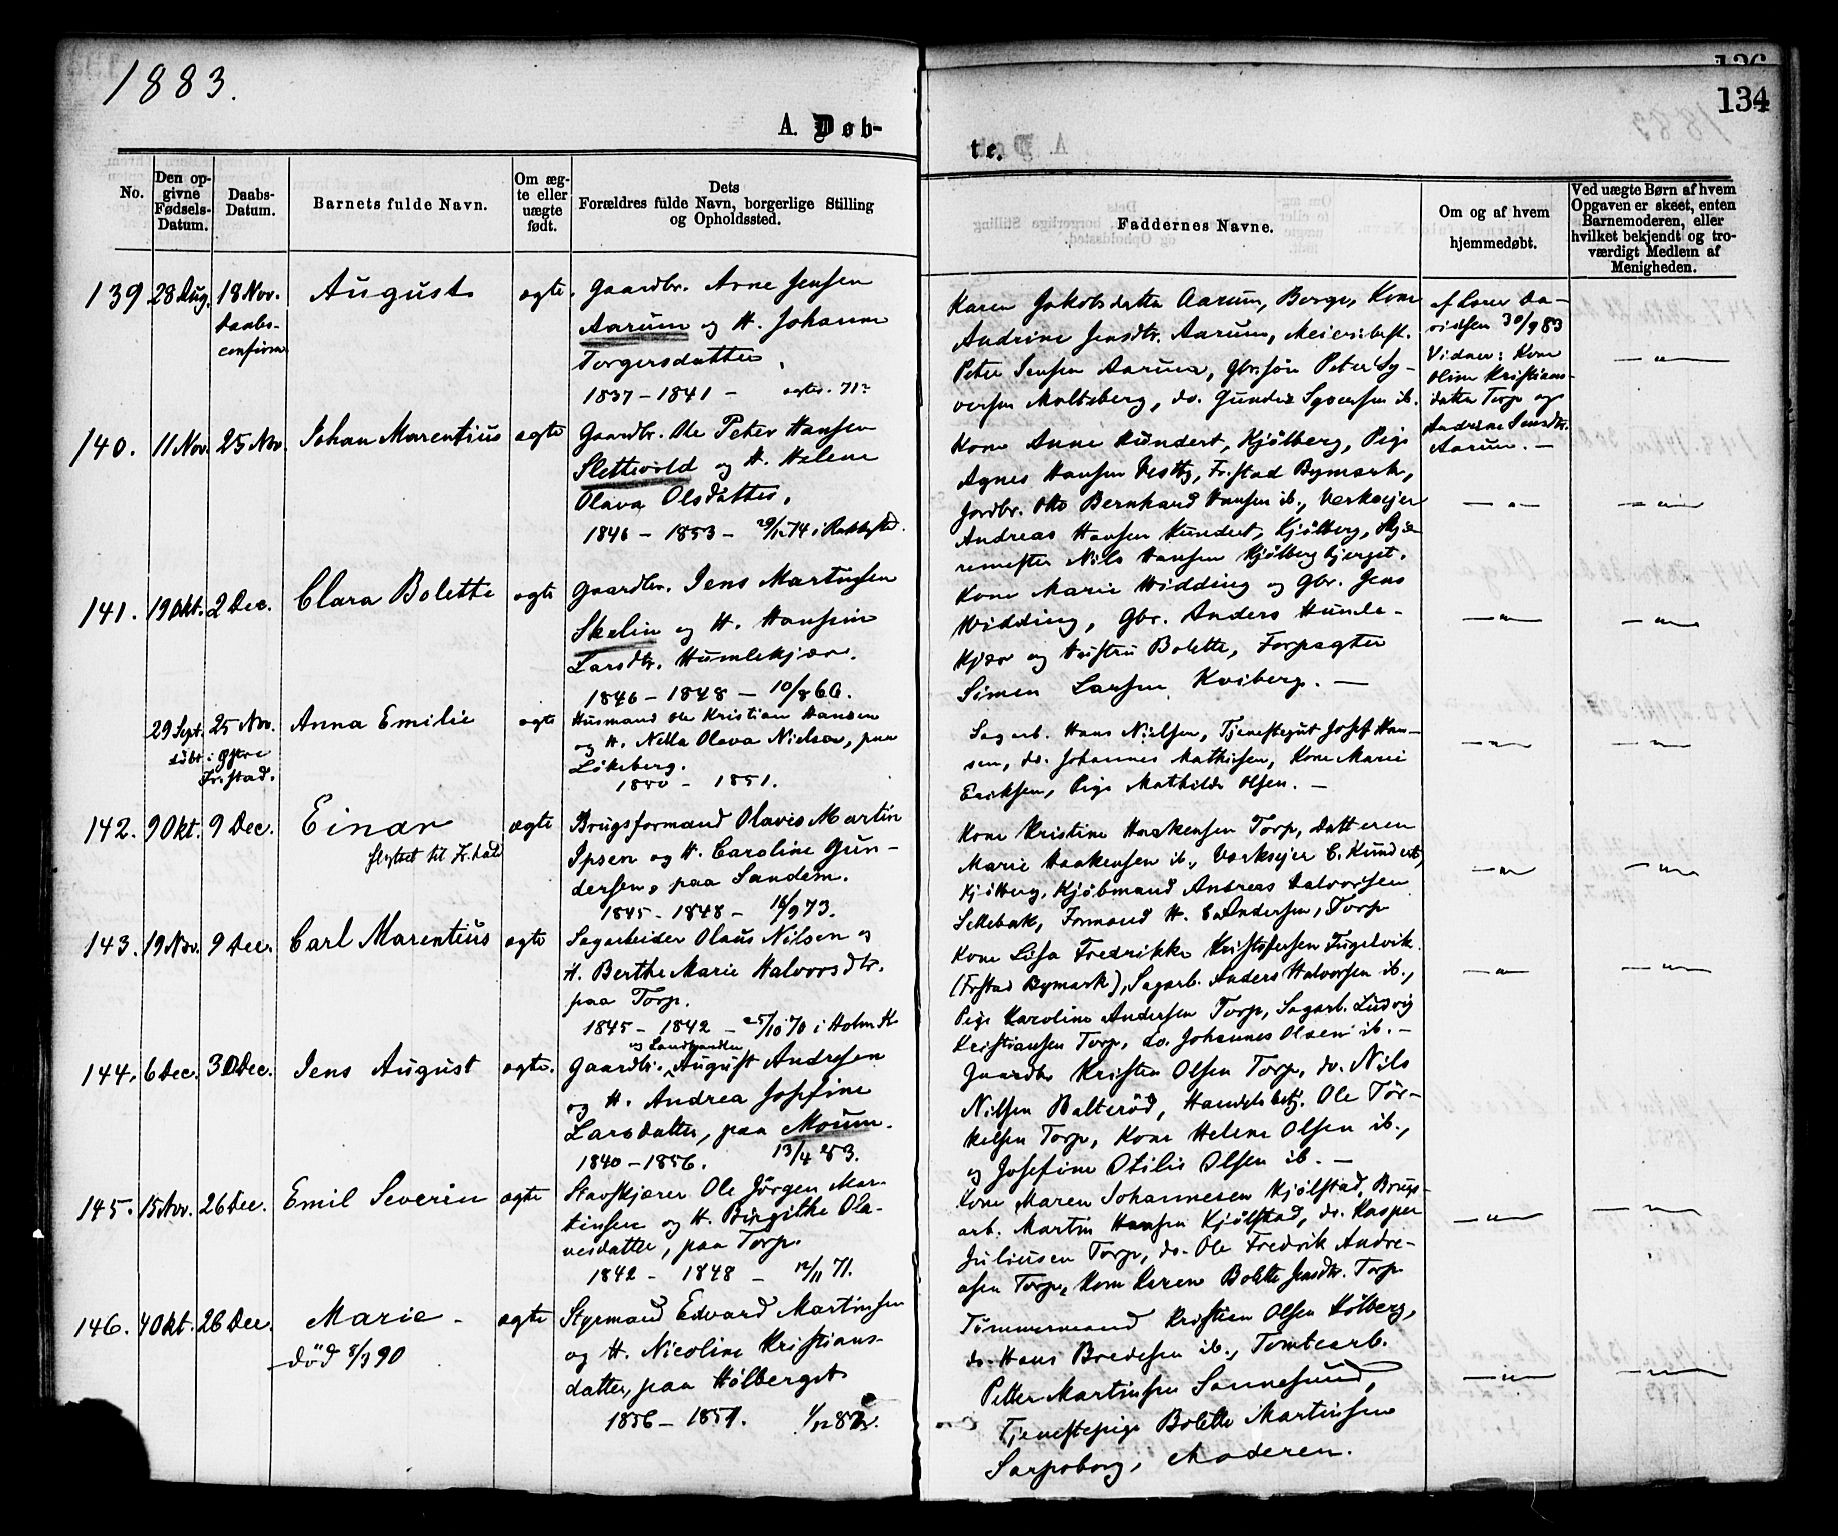 1883.
134
A. Døb-
te.
No.
Den op-
givne
Fødsels-
Datum.
Daabs-
Datum.
Barnets fulde Navn.
Om æg-
te eller
uægte
født.
Dets
Forældres fulde Navn, borgerlige Stilling
og Opholdssted.
Faddernes Navne.
Om og af hvem
hjemmedøbt.
Ved uægte Børn af hvem
Opgaven er skeet, enten
Barnemoderen, eller
hvilket bekjendt og tro-
værdigt Medlem af
Menigheden.
139 28 Aug. 18 Nov. August ægte. Gaardbr. Arne Jensen
daabs-
Aarum og H. Johanne
Torgersdatter.
1837 – 1841 –
Karen Jakobsdatter Aarum, Berge, Kone
Andrine Jensdtr. Aarum,
Peter Jensen Aarum, Gbrsøn Peter Sy-
versen Moltzberg, do. Gunder Syversen ib.
30/9 83
Vidner: Kone
Oline Kristians-
datter Torp og
Andrine Jensdtr.
Aarum. –
140. 11 Nov. 25 Nov. Johan Marentius ægte Gaardbr. Ole Peter Hansen
Slettevold og H. Helene
Olava Olsdatter.
1846 – 1853 –
Kone Anne Kundert, Kjølberg, Pige
Agnes Hansen Frstad Bymark,
Jordbr. Bernhard Hansen ib., Verksejer
Andreas Hansen Kundert, Kjølberg, Skjæ-
Nils Hansen Kjølbergbjerget.
141. 19 Okt. 2 Dec. Clara Bolette ægte Gaardbr. Jens Martinsen
Skelin og H. Hansine
Larsdtr. Humlekjær.
1846 – 1848 –
Kone Marie Widding og Gbr. Jens
Widding, Gbr. Anders Humle-
kjær og Hustru Bolette, Forpagter
Simen Larsen Kviberg. –
29 Sept. 25 Nov. Anna Emilie ægte Husmand Ole Kristian Hansen
døbt i Østre
Frstad.
og H. Nella Olava Nielsen, paa
Lökeberg.
1850 – 1851.
Sagarb. Hans Nielsen, Tjenestegut Josef Han-
sen, do. Johannes Mathisen, Kone Marie
Eriksen, Pige Mathilde Olsen. –
142. 9 Okt. 9 Dec. Einar ægte Brugsformand Olavis Martin
flyttet til
Ipsen og H. Caroline Gun-
dersen, paa Sandem.
1845 – 1848 – 16/9 73.
Kone Kristine Haakensen Torp, datteren
Marie Haakensen ib., Verksejer C. Kundert,
Kjølberg, Kjøbmand Andreas Halvorsen
Sellebak, Formand H. Andersen, Torp
143. 19 Nov. 9 Dec. Carl Marentius ægte Sagarbeider Olaus Nilsen og
H. Berthe Marie Halvorsdtr.
paa Torp.
1845 – 1842 – 25/10 70 i Holm K
Kone Lisa Fredrikke Kristofersen Fugelvik
(Frstad Bymark), Sagarb. Anders Halvorsen ib.,
Pige Karoline Andersen Torp, Sagarb. Ludvig
Kristiansen Torp, do. Johannes Olsen ib. –
144. 6 Dec. 30 Dec. Jens August ægte. Gaardbr. og Landhandler August Andresen
og H. Andrea Josefine
Larsdatter, paa Moum.
1840 – 1856. 13/4 83.
Gaardbr Kristen Olsen Torp, do. Nils
Nilsen Balteröd, Handelsbetj. Ole Tor-
kelsen Torp, Kone Helene Olsen ib.,
og Josefine Otilie Olsen ib. –
145. 15 Nov. 26 Dec. Emil Severin ægte Stavskjærer Ole Jörgen Mar-
tinsen og H. Birgithe Ola-
vesdatter, paa Torp.
1842 – 1848 – 12/11 71.
Kone Maren Johannesen Kjølstad, Brugs-
arb. Martin Hansen Kjølstad, do. Kasper
Juliusen Torp, do. Ole Fredrik Andre-
asen Torp, Kone Karen Bolette Jensdtr. Torp
146. 4 Okt. 26 Dec. Marie – ægte Styrmand Edvard Martinsen
död 8/3 90
og H. Nicoline Kristians-
datter, paa Hølberget
1856 – 1857. 1/12 82.
Tömmermand Kristian Olsen Hölberg,
do. Hans Bredesen ib., Tomtearb.
Petter Martinsen Sannesund,
Tjenestepige Bolette Martinsen
Sarpsborg, Moderen.